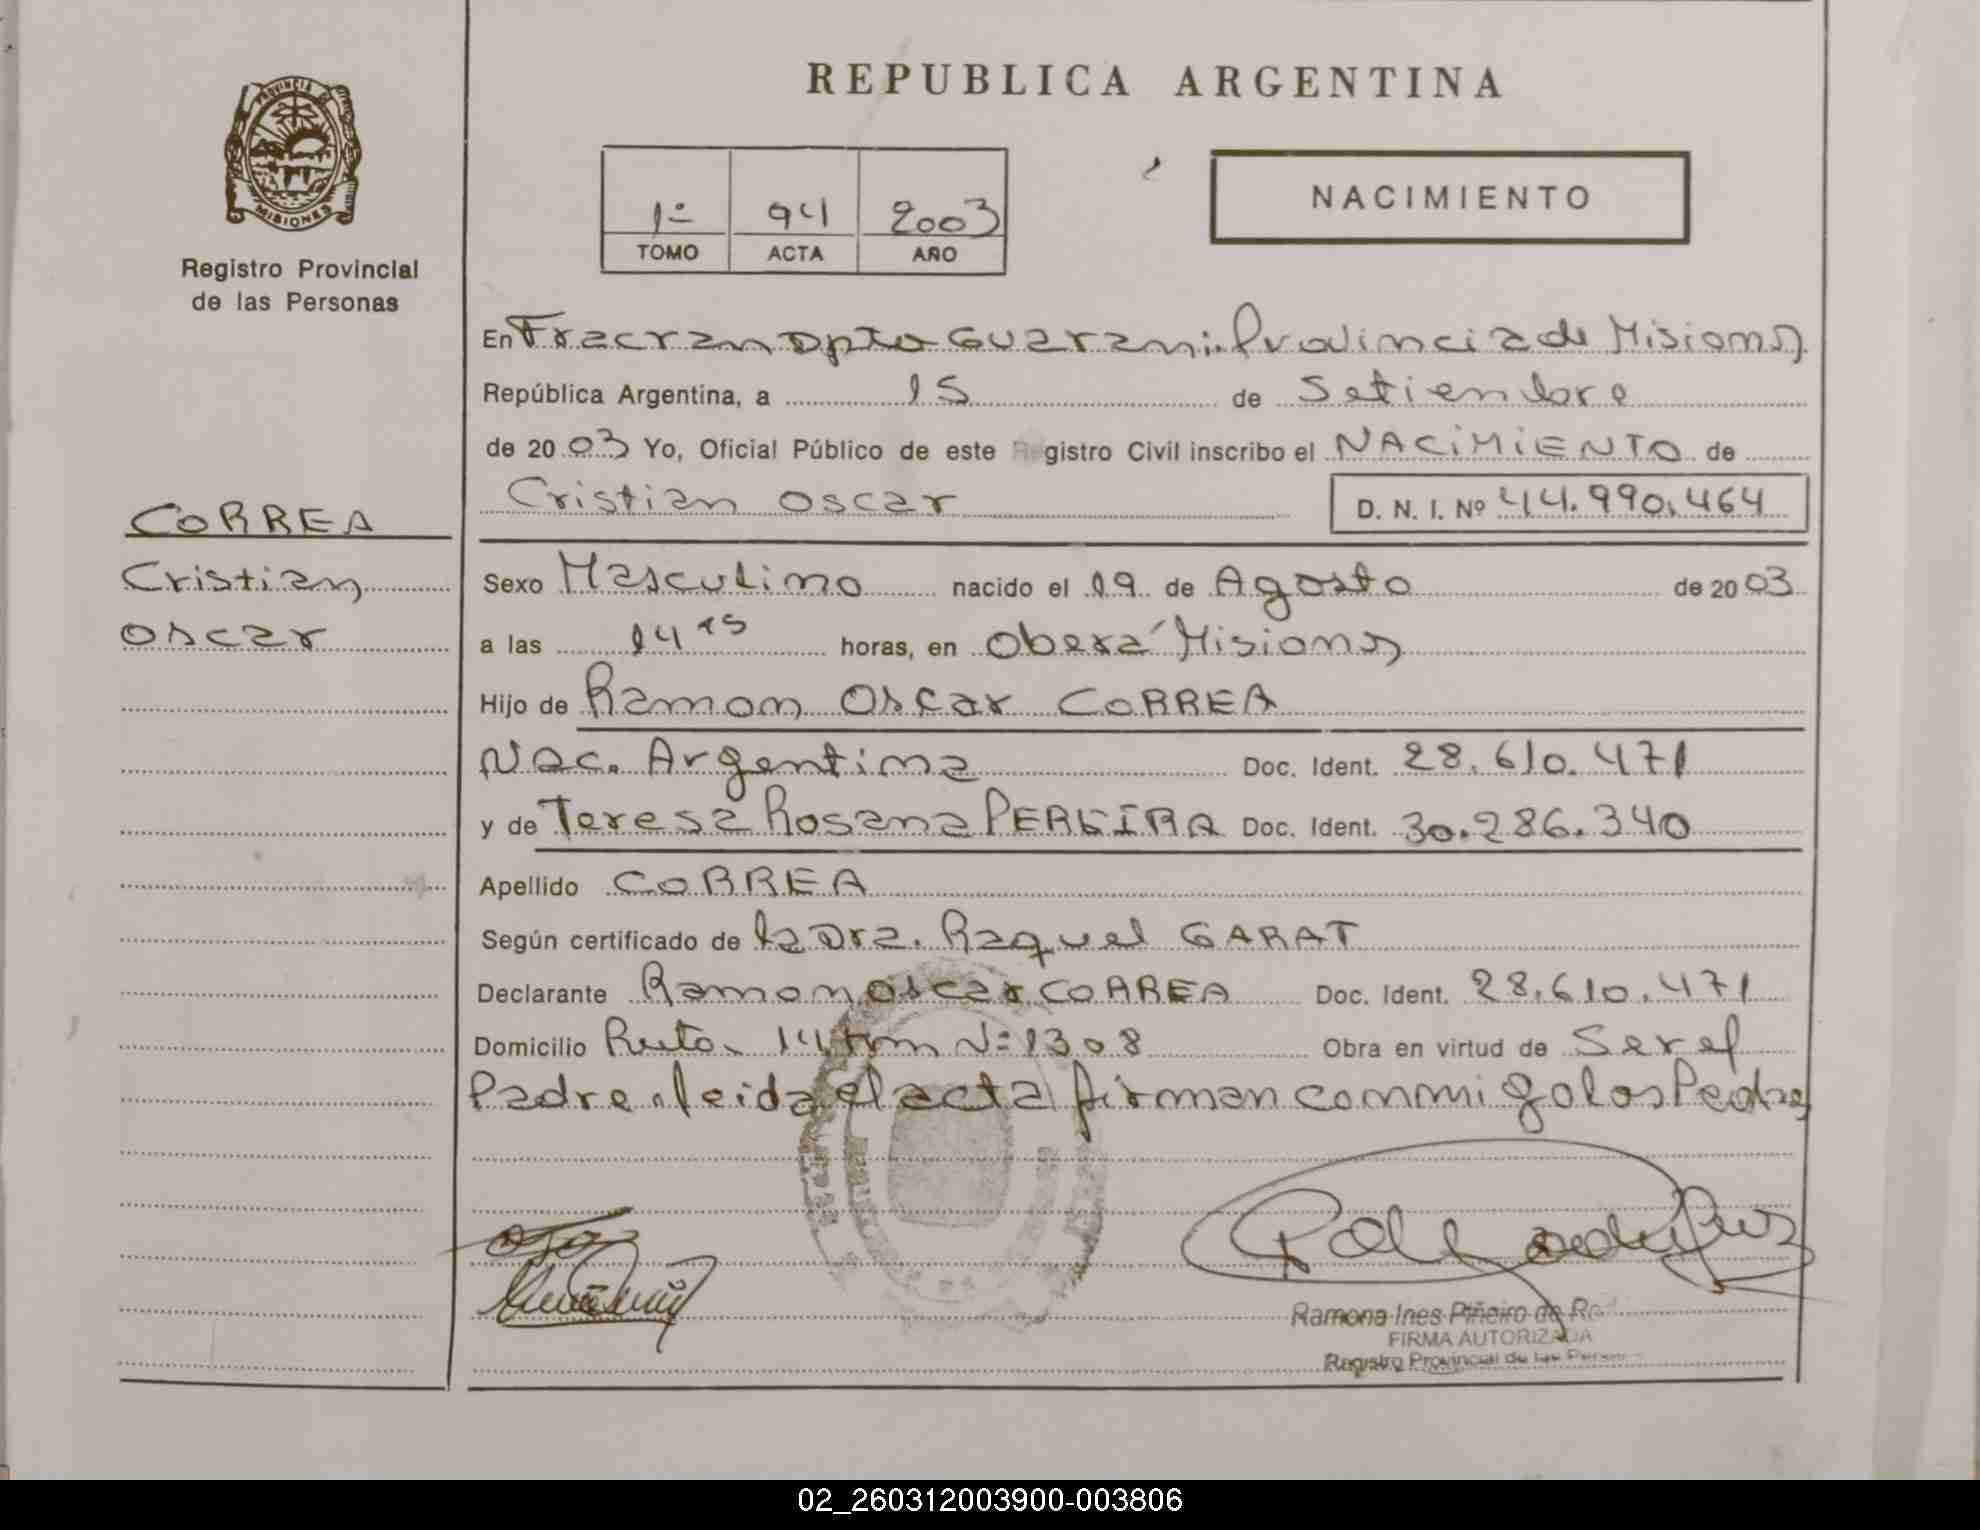 REPUBLICA ARGENTINA
PROVINCIA DE MISIONES
Registro Provincial
de las Personas
NACIMIENTO
1º 94 2003
TOMO ACTA AÑO
En Fracran Dpto Guarani: Provincia de Misiones
República Argentina, a 15 de Setiembre
de 2003 Yo, Oficial Público de este Registro Civil inscribo el NACIMIENTO de
Cristian Oscar D. N. I. Nº 44.990.464
CORREA
Cristian
Oscar
Sexo Masculino nacido el 19 de Agosto de 2003
a las 14 15 horas, en Oberá Misiones
Hijo de Ramon Oscar CORREA
Nac. Argentina Doc. Ident. 28.610.471
y de Teresa Rosana PEREIRA Doc. Ident. 30.286.340
Apellido CORREA
Según certificado de la Dra. Raquel GARAT
Declarante Ramon Oscar CORREA Doc. Ident. 28.610.471
Domicilio Ruta 14 Km Nº 1308 Obra en virtud de Ser el
Padre leida el acta firman conmigo los Padres
Ramona Ines Piñeiro de
FIRMA AUTORIZADA
Registro Provincial de las
02_260312003900-003806